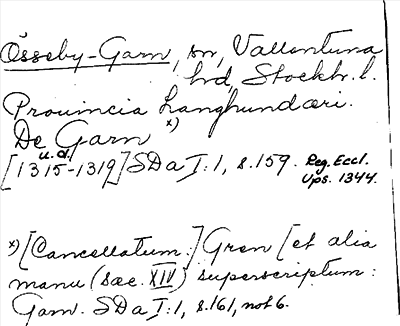 Össeby-Garn, sn, Vallentuna
hd, Stockh. l.
Prouincia Langhundæri.
De Garn x)
u.d.
[1315-1319] SDa I:1, s.159. Reg. Eccl.
Ups. 1344.
x) [Cancellatum:] Gren [et alia
manu (sæc. XIV) superscriptum:
Garn. SDa I:1, s.161, not 6.